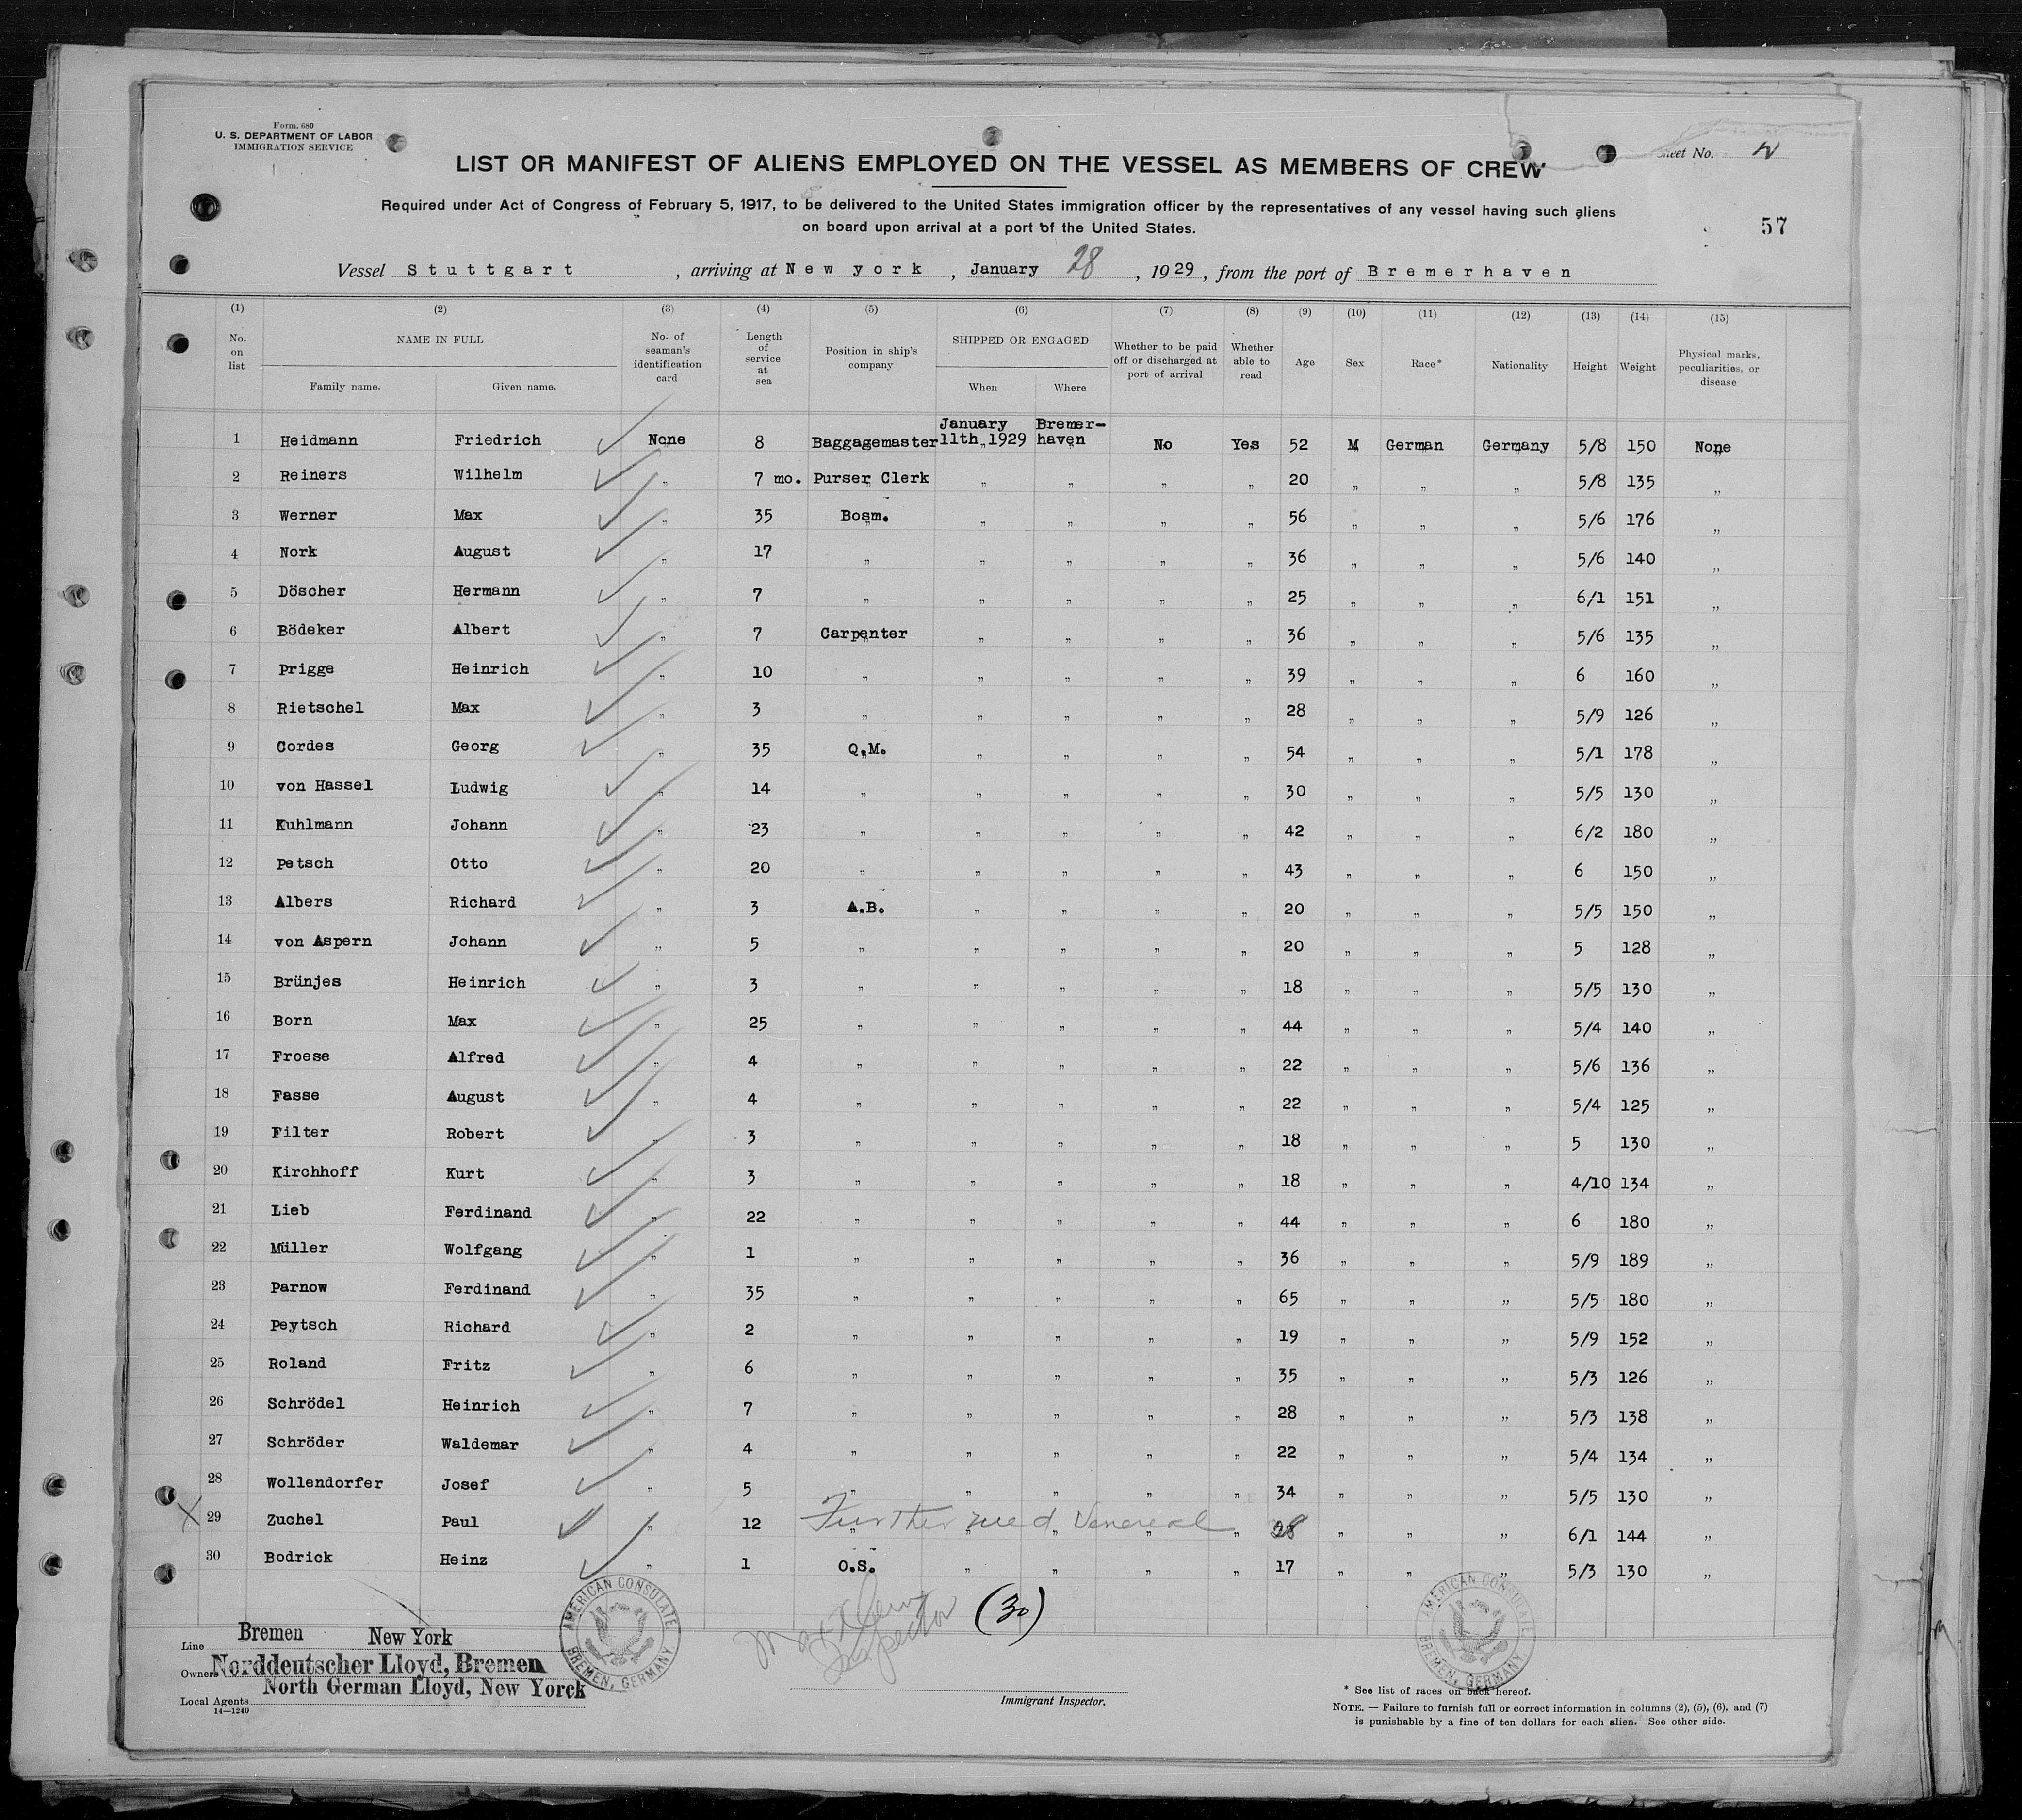 Form. 680
U. S. DEPARTMENT OF LABOR
IMMIGRATION SERVICE
LIST OR MANIFEST OF ALIENS EMPLOYED ON THE VESSEL AS MEMBERS OF CREW
Sheet No.
Required under Act of Congress of February 5, 1917, to be delivered to the United States immigration officer by the representatives of any vessel having such aliens
on board upon arrival at a port of the United States.
57
Vessel Stuttgart, arriving at New york, January 28, 1929, from the port of Bremerhaven
(1) (2) (3) (4) (5) (6) (7) (8) (9) (10) (11) (12) (13) (14) (15)
No. on list NAME IN FULL Family name. Given name. No. of seaman's identification card Length of service at sea Position in ship's company SHIPPED OR ENGAGED When Where Whether to be paid off or discharged at port of arrival Whether able to read Age Sex Race* Nationality Height Weight Physical marks, peculiarities, or disease
1 Heidmann Friedrich None 8 Baggagemaster January 11th 1929 Bremer-haven No Yes 52 M German Germany 5/8 150 None
2 Reiners Wilhelm " 7 mo. Purser Clerk " " " " 20 " " " 5/8 135 "
3 Werner Max " 35 Bosm. " " " " 56 " " " 5/6 176 "
4 Nork August " 17 " " " " " 36 " " " 5/6 140 "
5 Döscher Hermann " 7 " " " " " 25 " " " 6/1 151 "
6 Bödeker Albert " 7 Carpenter " " " " 36 " " " 5/6 135 "
7 Prigge Heinrich " 10 " " " " " 39 " " " 6 160 "
8 Rietschel Max " 3 " " " " " 28 " " " 5/9 126 "
9 Cordes Georg " 35 Q.M. " " " " 54 " " " 5/1 178 "
10 von Hassel Ludwig " 14 " " " " " 30 " " " 5/5 130 "
11 Kuhlmann Johann " 23 " " " " " 42 " " " 6/2 180 "
12 Petsch Otto " 20 " " " " " 43 " " " 6 150 "
13 Albers Richard " 3 A.B. " " " " 20 " " " 5/5 150 "
14 von Aspern Johann " 5 " " " " " 20 " " " 5 128 "
15 Brünjes Heinrich " 3 " " " " " 18 " " " 5/5 130 "
16 Born Max " 25 " " " " " 44 " " " 5/4 140 "
17 Froese Alfred " 4 " " " " " 22 " " " 5/6 136 "
18 Fasse August " 4 " " " " " 22 " " " 5/4 125 "
19 Filter Robert " 3 " " " " " 18 " " " 5 130 "
20 Kirchhoff Kurt " 3 " " " " " 18 " " " 4/10 134 "
21 Lieb Ferdinand " 22 " " " " " 44 " " " 6 180 "
22 Müller Wolfgang " 1 " " " " " 36 " " " 5/9 189 "
23 Parnow Ferdinand " 35 " " " " " 65 " " " 5/5 180 "
24 Peytsch Richard " 2 " " " " " 19 " " " 5/9 152 "
25 Roland Fritz " 6 " " " " " 35 " " " 5/3 126 "
26 Schrödel Heinrich " 7 " " " " " 28 " " " 5/3 138 "
27 Schröder Waldemar " 4 " " " " " 22 " " " 5/4 134 "
28 Wollendorfer Josef " 5 " " " " " 34 " " " 5/5 130 "
X 29 Zuchel Paul " 12 " " " " " 28 " " " 6/1 144 "
Further med Venereal
30 Bodrick Heinz " 1 O.S. " " " " 17 " " " 5/3 130 "
(30)
Inspector
AMERICAN CONSULATE BREMEN, GERMANY
AMERICAN CONSULATE BREMEN, GERMANY
Line Bremen New York
Owners Norddeutscher Lloyd, Bremen
Local Agents North German Lloyd, New Yorck
14—1240
Immigrant Inspector.
* See list of races on back hereof.
NOTE. — Failure to furnish full or correct information in columns (2), (5), (6), and (7)
is punishable by a fine of ten dollars for each alien. See other side.